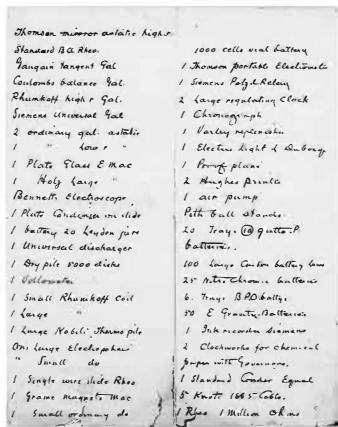 Thomson mirror astatic high r
Standard BA Rheo.
Gaugain Tangent Gal
Coulombs balance Gal.
Rhumkoff high r Gal.
Siemens Universal Gal
2 ordinary gal. astatic
1 " low r "
1 Plate Glass E Mac
1 Holtz Large "
Bennetts Electroscope
1 Plate Condenser on slide
1 battery 20 Leyden jars
1 Universal discharger
1 Dry pile 5000 disks
1 Voltameter
1 Small Rhumkoff Coil
1 Large "
1 Large Nobili Thermo pile
One Large Electrophorus
" Small do
1 Single wire slide Rheo
1 Grame magneto Mac
1 Small ordinary do
1000 cells vial battery
1 Thomson portable Electrometer
1 Siemens Polzd Relay
2 Large regulating Clock
1 Chronograph
1 Varley replenisher
1 Electric Light & Duboscq
1 Proof plane
2 Hughes Printer
1 air pump
Pith ball stands.
20 Trays (10) gutta P.
batteries.
100 Large Carbon battery
25 Nitro Chromic batteries
6. Trays BPO battys.
50 E Gravity Batteries
1 Ink recorder Siemens
2 Clockworks for chemical
paper with Governors.
1 Standard Conder Equal
5 Knots 1865 Cable.
1 Rheo 1 Million Ohms